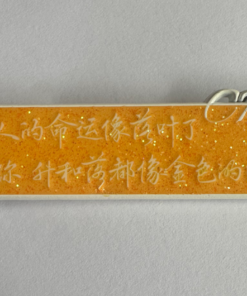 人的命运像落叶了
你 升和落都像金色的